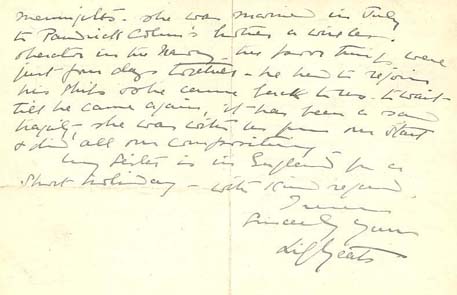 meningitis - she was married in July
to Padraic Colum's brother a wireless
operator in the Navy - the poor things were
just four days together - he had to rejoin
his ship so she came back to us - to wait
till he came again, it has been a sad
tragedy - she was with us from our start
& did all our compositing
My sister is in England for a
short holiday - with kind regards
I remain
Sincerely yours